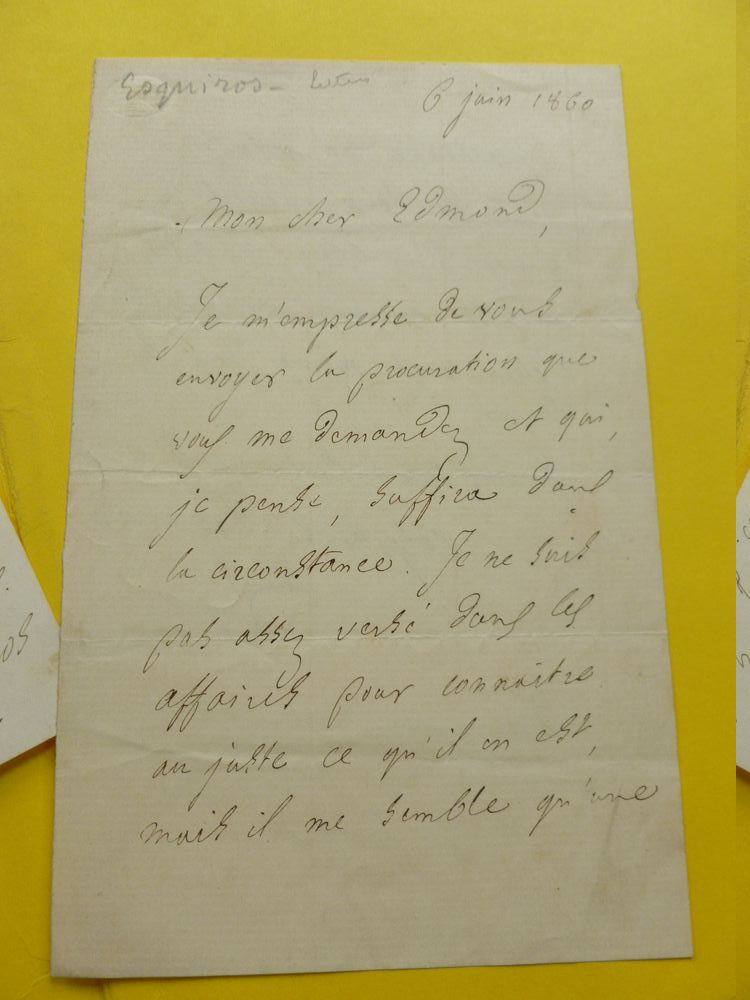 Esquiros -
6 juin 1860
Mon cher Edmond,
Je m'empresse de vous
envoyer la procuration que
vous me demandez et qui,
je pense, suffira dans
la circonstance. Je ne suis
pas assez versé dans les
affaires pour connaître
au juste ce qu'il en est,
mais il me semble qu'une